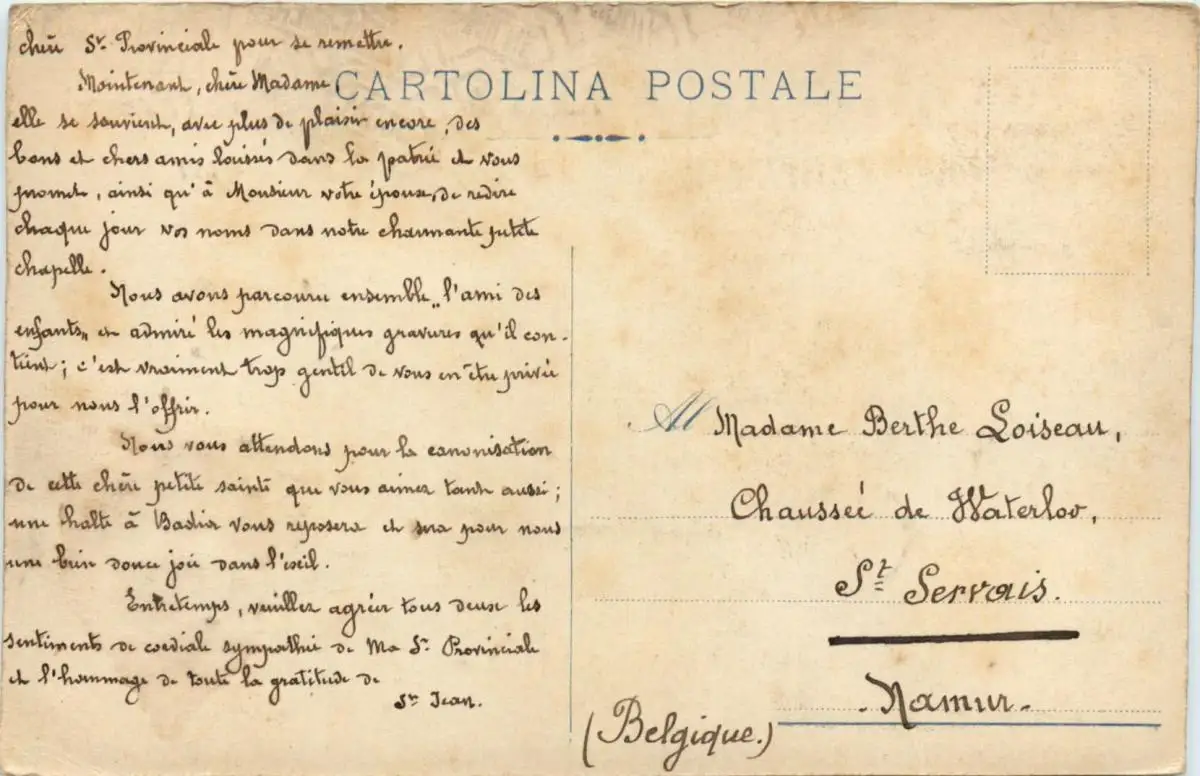 chère Sr Provinciale pour se remettre.
Maintenant, chère Madame,
elle se souvient, avec plus de plaisir encore, des
bons et chers amis laissés dans la patrie et vous
promet, ainsi qu'à Monsieur votre époux, de redire
chaque jour vos noms dans notre charmante petite
chapelle.
Nous avons parcouru ensemble „l'ami des
enfants„ et admiré les magnifiques gravures qu'il con-
tient; c'est vraiment trop gentil de vous en être privée
pour nous l'offrir.
Nous vous attendons pour la canonisation
de cette chère petite sainte que vous aimez tant aussi;
une halte à Badia vous reposera et sera pour nous
une bien douce joie dans l'exil.
Entretemps, veuillez agréer tous deux les
sentiments de cordiale sympathie de Ma Sr Provinciale
et l'hommage de toute la gratitude de
Sr Jean.
CARTOLINA POSTALE
Al Madame Berthe Loiseau,
Chaussée de Waterloo,
St Servais.
Namur.
(Belgique.)